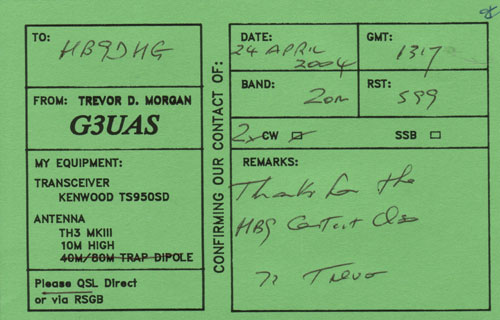 TO:
HB9DHG
FROM: TREVOR D. MORGAN
G3UAS
MY EQUIPMENT:
TRANSCEIVER
KENWOOD TS950SD
ANTENNA
TH3 MKIII
10M HIGH
40M/80M TRAP DIPOLE
Please QSL Direct
or via RSGB
CONFIRMING OUR CONTACT OF:
DATE:
24 APRIL
2004
GMT:
1317
BAND:
20m
RST:
599
2x CW
SSB
REMARKS:
Thanks for the
HB9 Contest QSO
73 Trevor